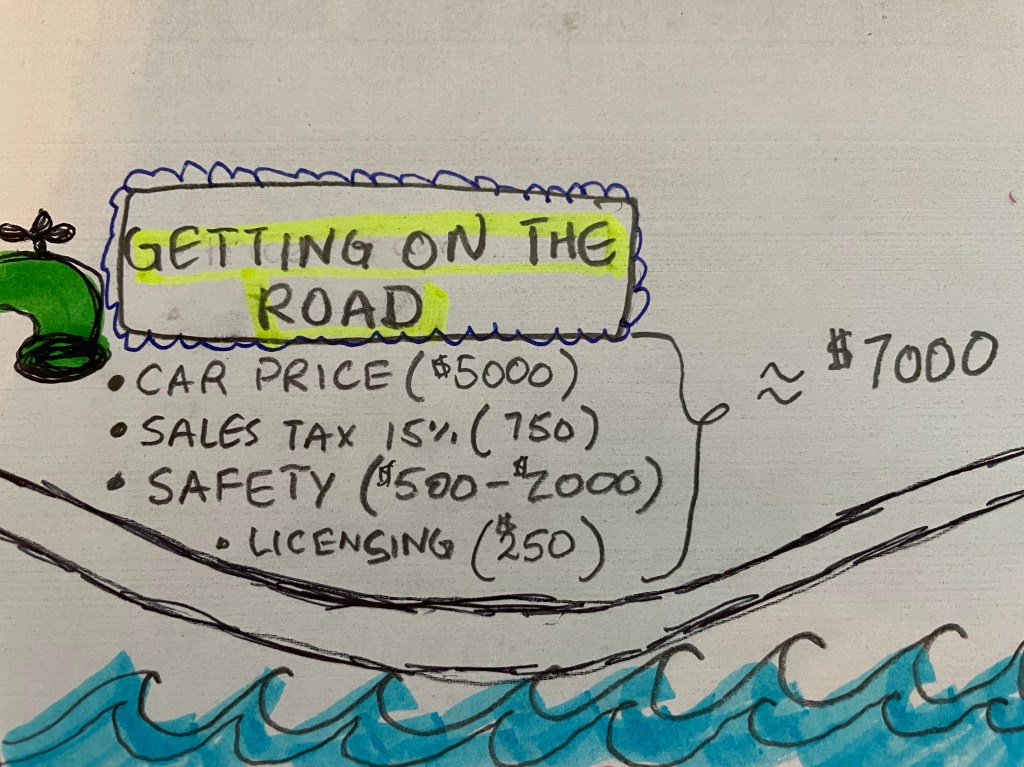 GETTING ON THE
ROAD
• CAR PRICE ($5000)
• SALES TAX 15% (750)
• SAFETY ($500-$2000)
• LICENSING ($250)
≈ $7000